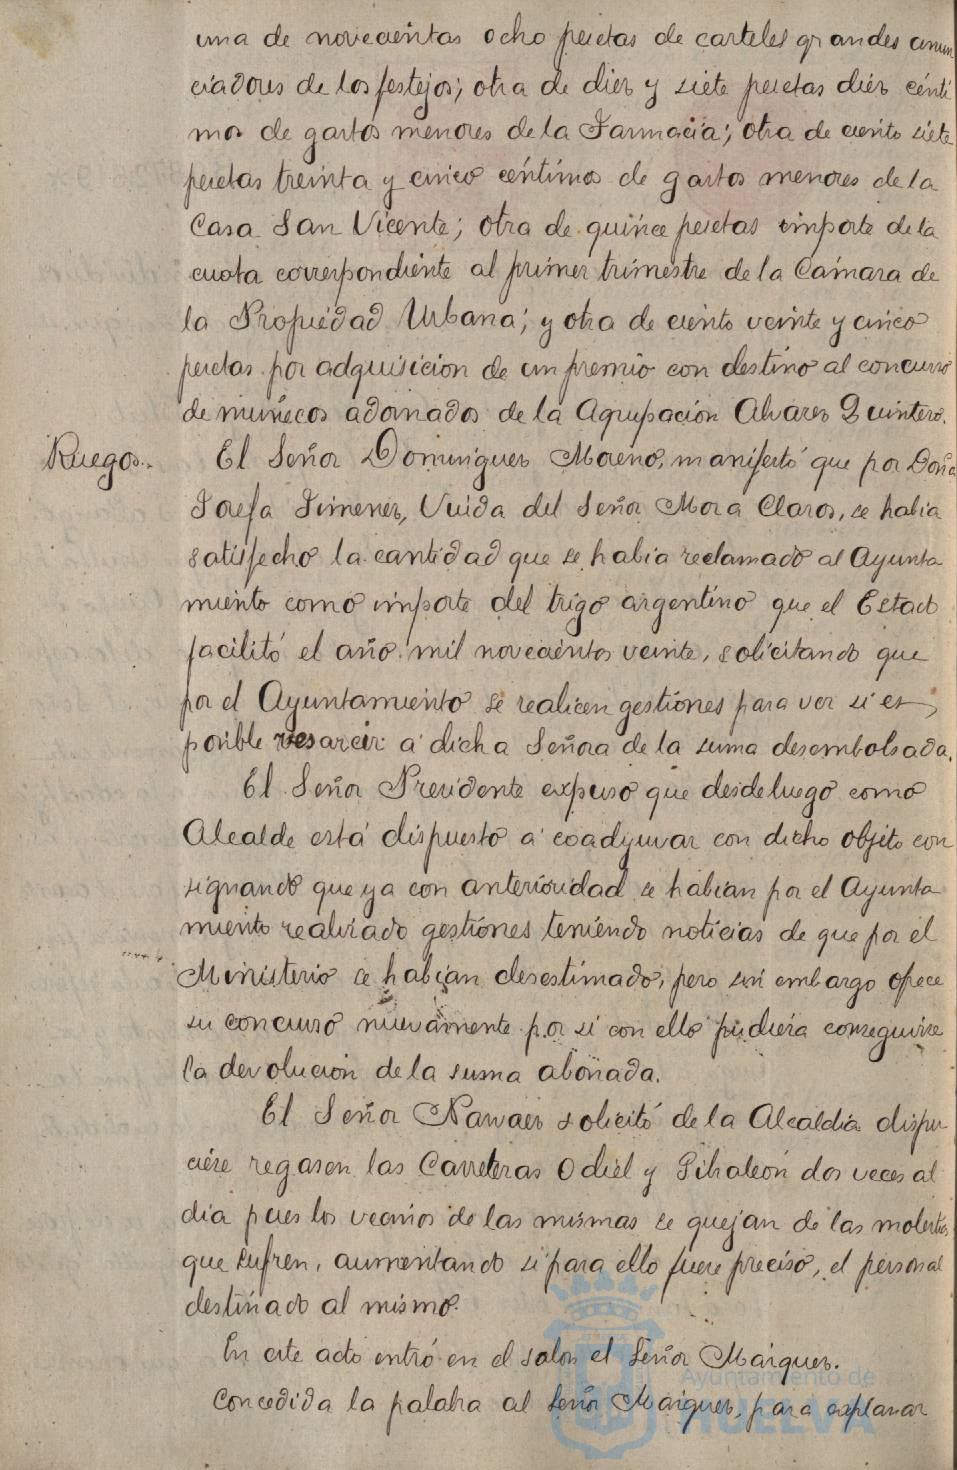 una de novecientas ocho pesetas de carteles grandes anun
ciadores de los festejos; otra de diez y siete pesetas diez cénti
mos de gastos menores de la Farmacia; otra de ciento siete
pesetas treinta y cinco céntimos de gastos menores de la
Casa San Vicente; otra de quince pesetas importe de la
cuota correspondiente al primer trimestre de la Cámara de
la Propiedad Urbana; y otra de ciento veinte y cinco
pesetas por adquisicion de un premio con destino al concurso
de muñecos adornados de la Agrupación Alvarez Quintero.
Ruegos.. El Señor Dominguez Moreno, manifestó que por Doña
Josefa Jimenez, Viuda del Señor Mora Claros, se habia
satisfecho la cantidad que se habia reclamado al Ayunta
miento como importe del trigo argentino que el Estado
facilitó el año mil novecientos veinte, solicitando que
por el Ayuntamiento se realicen gestiones para ver si es
posible resarcir á dicha Señora de la suma desembolsada.
El Señor Presidente expuso que desde luego como
Alcalde está dispuesto á coadyuvar con dicho objeto con
signando que ya con anterioridad se habian por el Ayunta
miento realizado gestiones teniendo noticias de que por el
Ministerio se habian desestimado, pero sin embargo ofrece
su concurso nuevamente por si con ello pudiera conseguirse
la devolucion de la suma abonada.
El Señor Narvaez solicitó de la Alcaldia dispu-
ciese regasen las Carreteras Odiel y Gibraleón dos veces al
dia pues los vecinos de las mismas se quejan de las molestias
que sufren, aumentando si para ello fuere preciso, el personal
destinado al mismo.
En este acto entró en el salon el Señor Marquez.
Concedida la palabra al Señor Marquez, para explanar
Ayuntamiento de
HUELVA